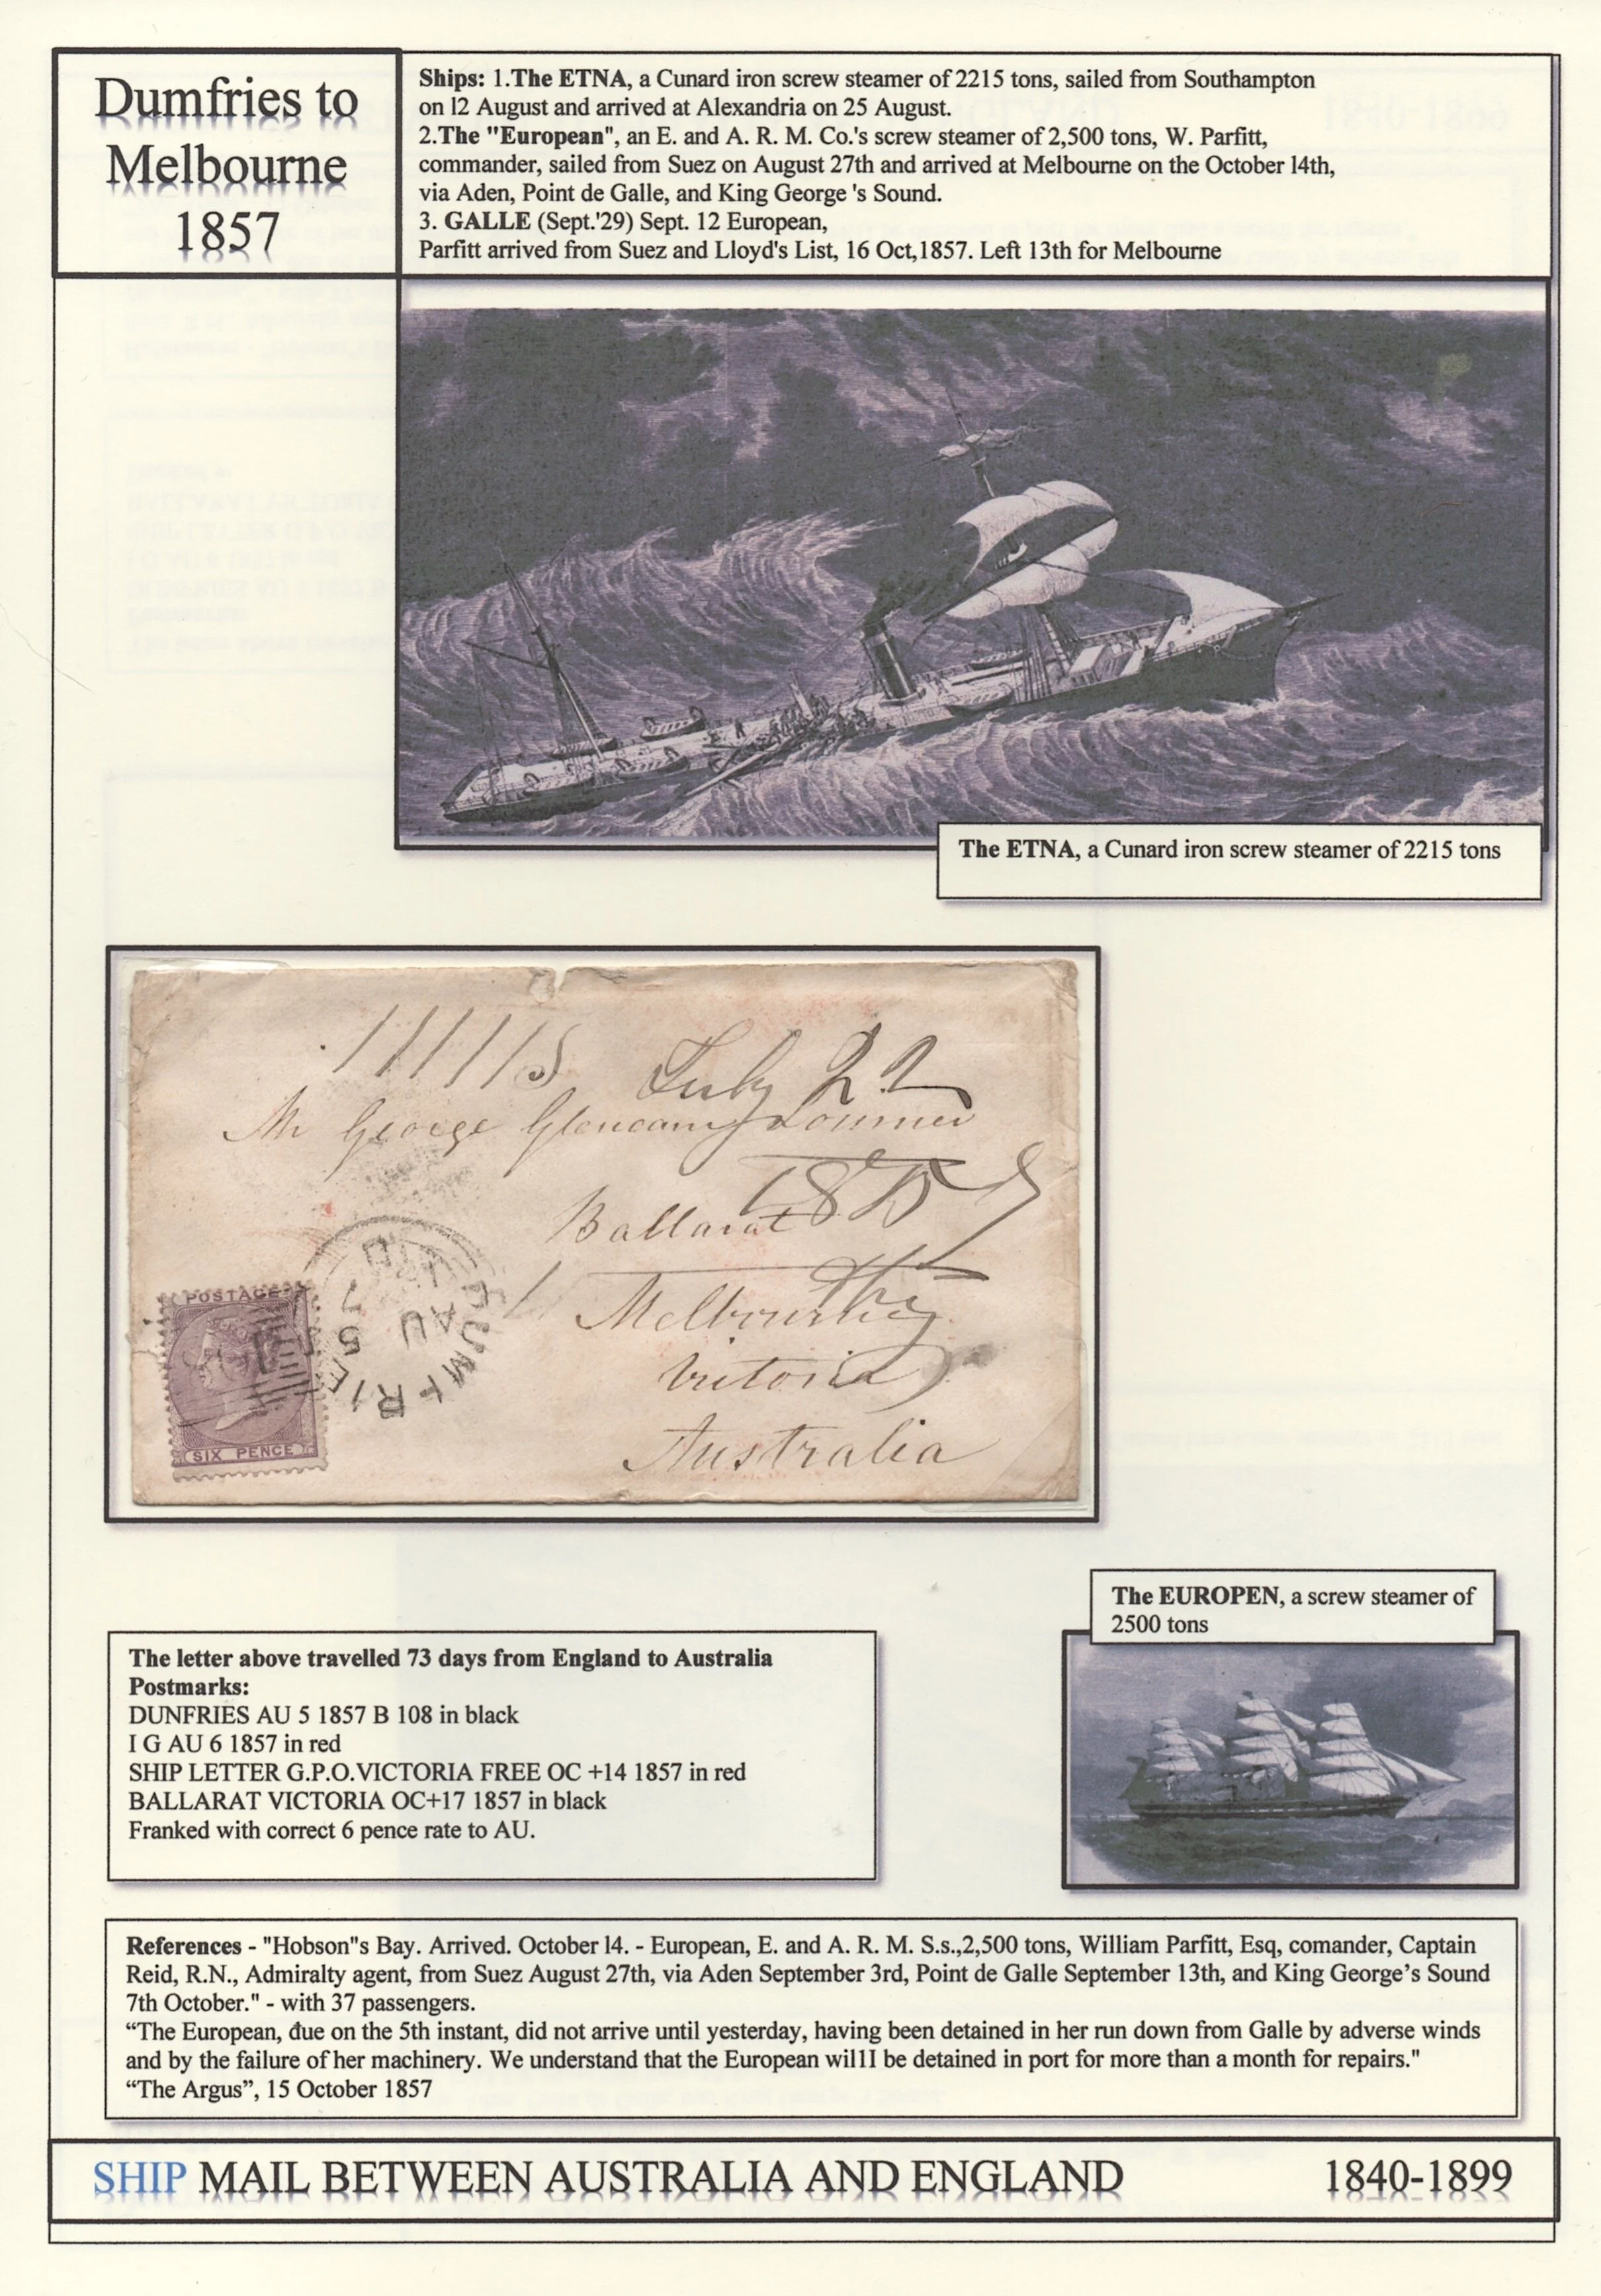 Dumfries to
Melbourne
1857
Ships: 1.The ETNA, a Cunard iron screw steamer of 2215 tons, sailed from Southampton
on l2 August and arrived at Alexandria on 25 August.
2.The "European", an E. and A. R. M. Co.'s screw steamer of 2,500 tons, W. Parfitt,
commander, sailed from Suez on August 27th and arrived at Melbourne on the October l4th,
via Aden, Point de Galle, and King George 's Sound.
3. GALLE (Sept.'29) Sept. 12 European,
Parfitt arrived from Suez and Lloyd's List, 16 Oct,1857. Left 13th for Melbourne
The ETNA, a Cunard iron screw steamer of 2215 tons
July 22
Mr George Glencairn Lorimer
1857
Ballarat
Melbourne
Victoria
Australia
POSTAGE
SIX PENCE
DUMFRIES
AU 5
The EUROPEN, a screw steamer of
2500 tons
The letter above travelled 73 days from England to Australia
Postmarks:
DUNFRIES AU 5 1857 B 108 in black
I G AU 6 1857 in red
SHIP LETTER G.P.O.VICTORIA FREE OC +14 1857 in red
BALLARAT VICTORIA OC+17 1857 in black
Franked with correct 6 pence rate to AU.
References - "Hobson"s Bay. Arrived. October l4. - European, E. and A. R. M. S.s.,2,500 tons, William Parfitt, Esq, comander, Captain
Reid, R.N., Admiralty agent, from Suez August 27th, via Aden September 3rd, Point de Galle September 13th, and King George’s Sound
7th October." - with 37 passengers.
“The European, đue on the 5th instant, did not arrive until yesterday, having been detained in her run down from Galle by adverse winds
and by the failure of her machinery. We understand that the European will1I be detained in port for more than a month for repairs."
“The Argus”, 15 October 1857
SHIP MAIL BETWEEN AUSTRALIA AND ENGLAND 1840-1899